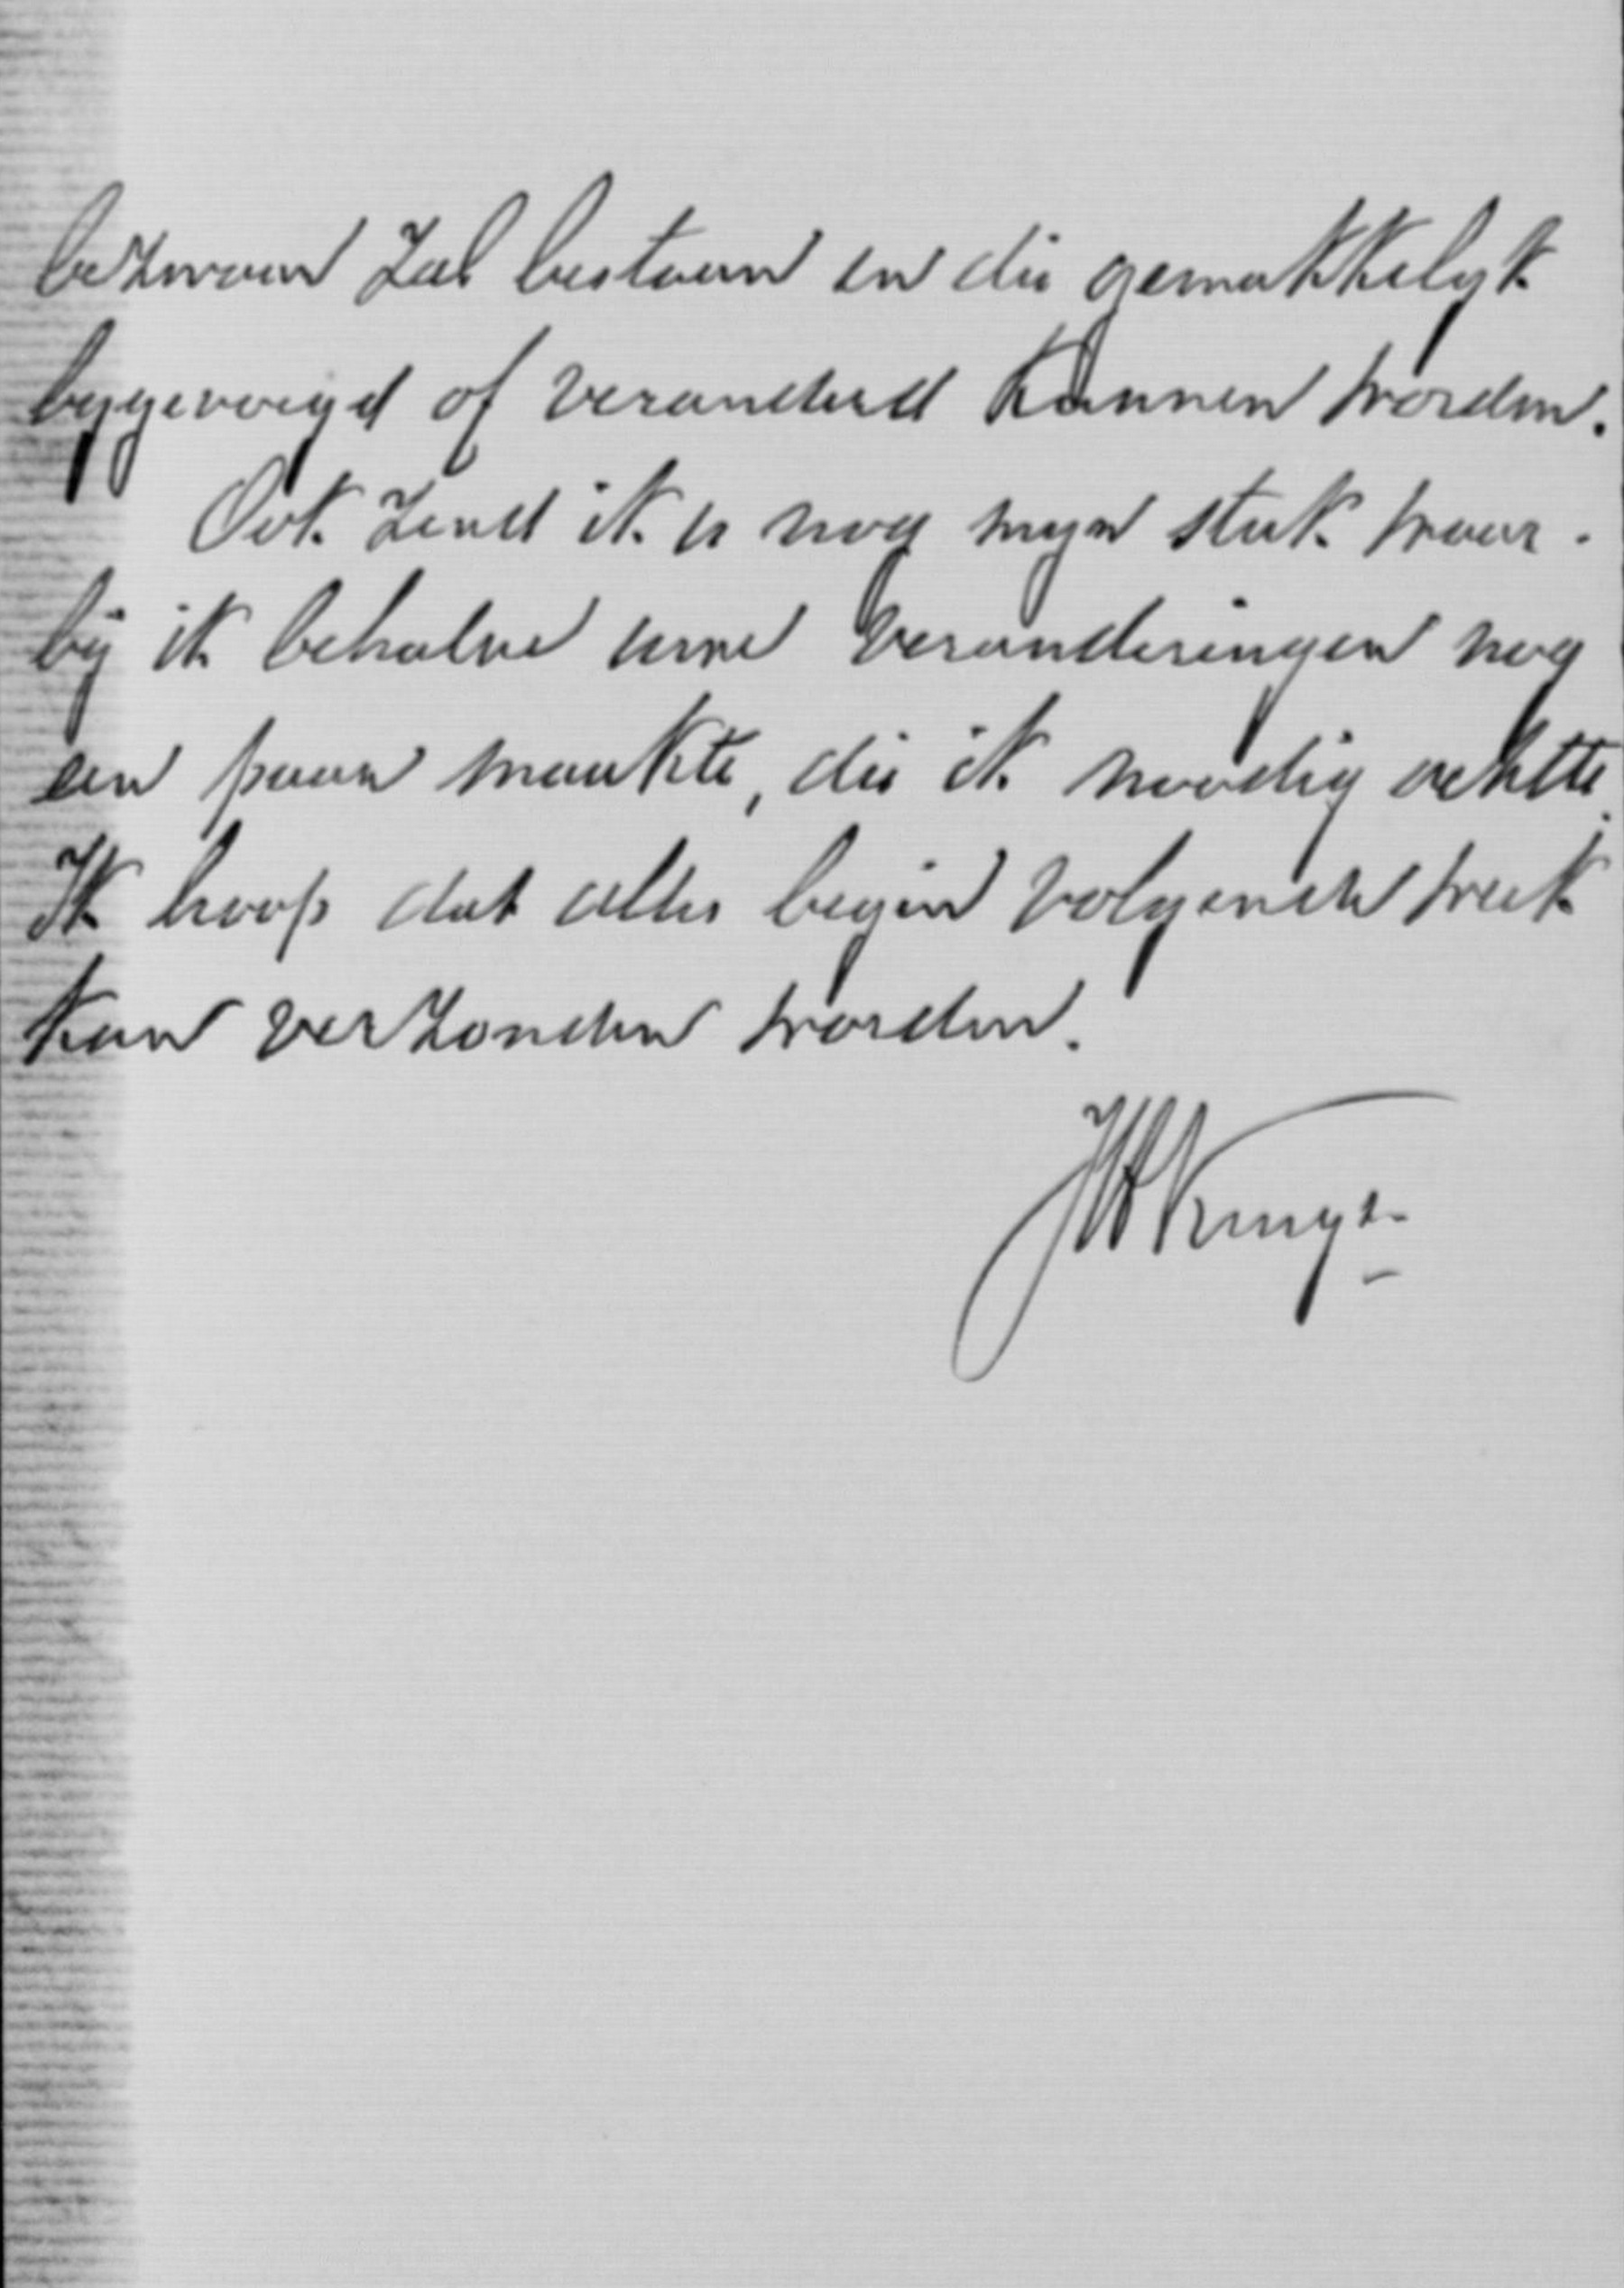 bezwaar zal bestaan en die gemakkelyk
bygevoegd of veranderd kunnen worden.
Ook zend ik u nog myn stuk waar-
bij ik behalve uwe veranderingen nog
een paar maakte, die ik noodig achtte.
Ik hoop dat alles begin volgende week
kan verzonden worden.